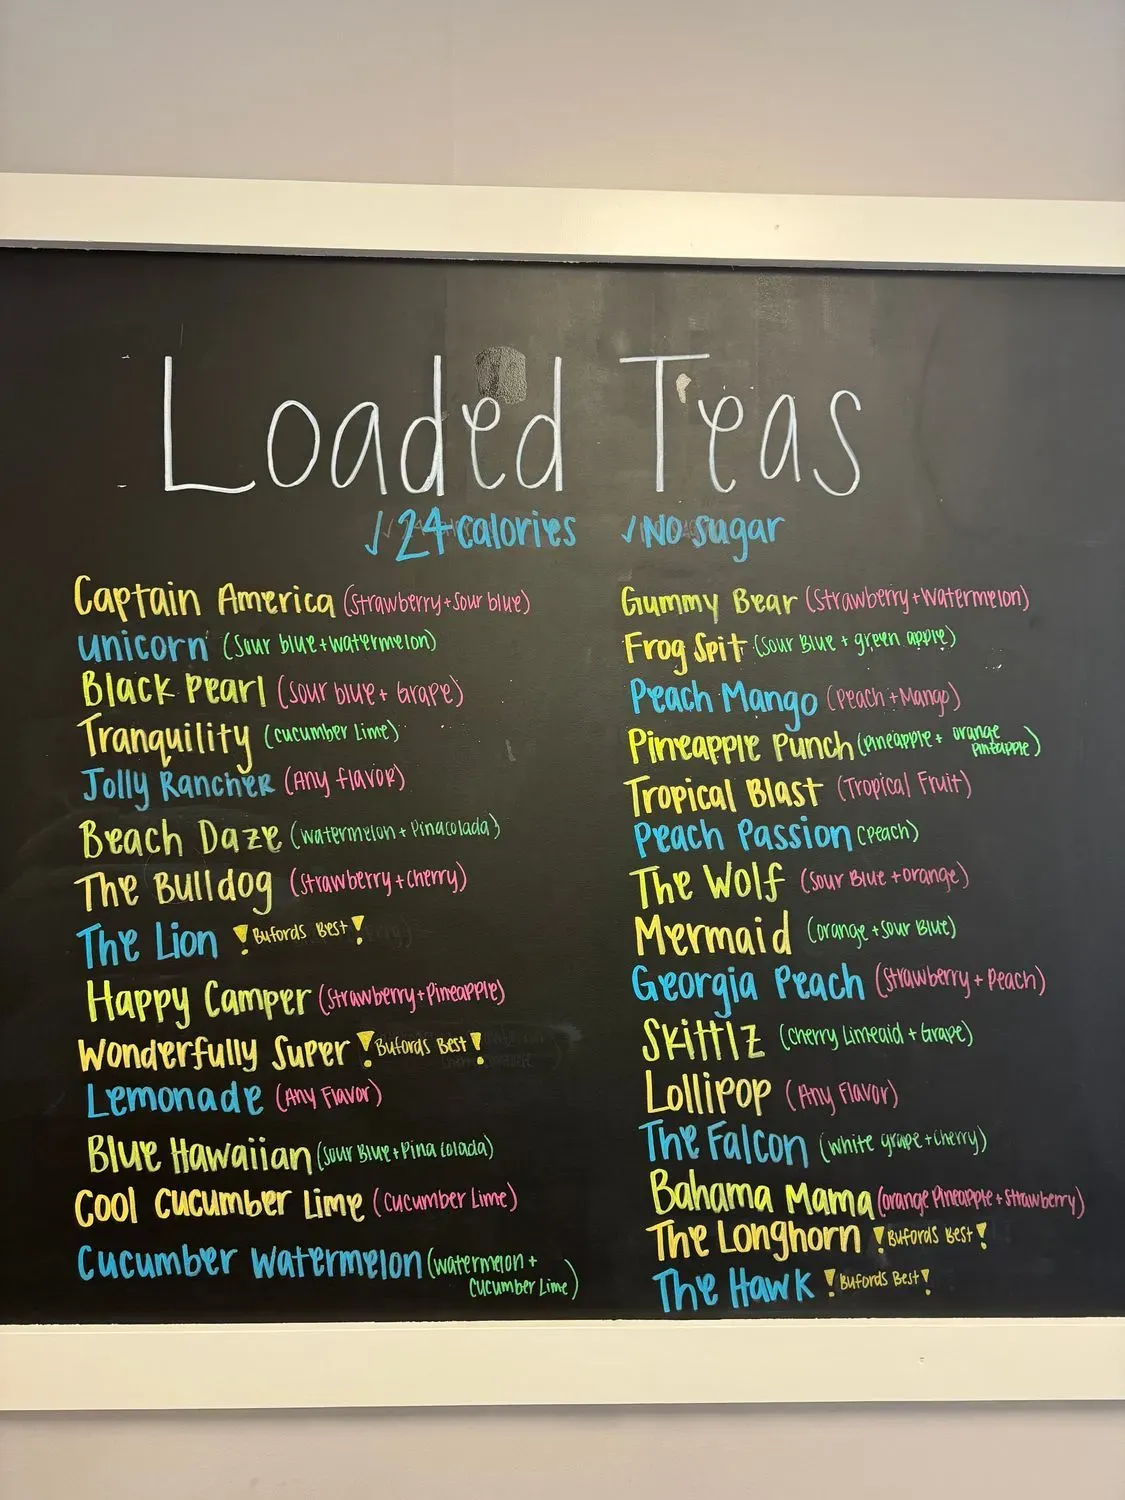 Loaded Teas
✓24 calories ✓No sugar
Captain America (strawberry + sour blue)
unicorn (sour blue + watermelon)
Black Pearl (sour blue + Grape)
Tranquility (cucumber Lime)
Jolly Rancher (Any flavor)
Beach Daze (watermelon + Pinacolada)
The Bulldog (strawberry + cherry)
The Lion !Bufords Best!
Happy Camper (strawberry + Pineapple)
Wonderfully Super !Bufords Best!
Lemonade (Any Flavor)
Blue Hawaiian (sour Blue + Pina colada)
Cool Cucumber Lime (cucumber Lime)
Cucumber Watermelon (watermelon +
cucumber Lime)
Gummy Bear (strawberry + watermelon)
Frog Spit (sour Blue + green apple)
Peach Mango (Peach + Mango)
Pineapple Punch (Pineapple + orange
Pineapple)
Tropical Blast (Tropical Fruit)
Peach Passion (Peach)
The Wolf (sour Blue + orange)
Mermaid (orange + sour Blue)
Georgia Peach (strawberry + Peach)
Skittlz (cherry Limeaid + Grape)
Lollipop (Any Flavor)
The Falcon (white grape + cherry)
Bahama Mama (orange Pineapple + strawberry)
The Longhorn !Bufords Best!
The Hawk !Bufords Best!